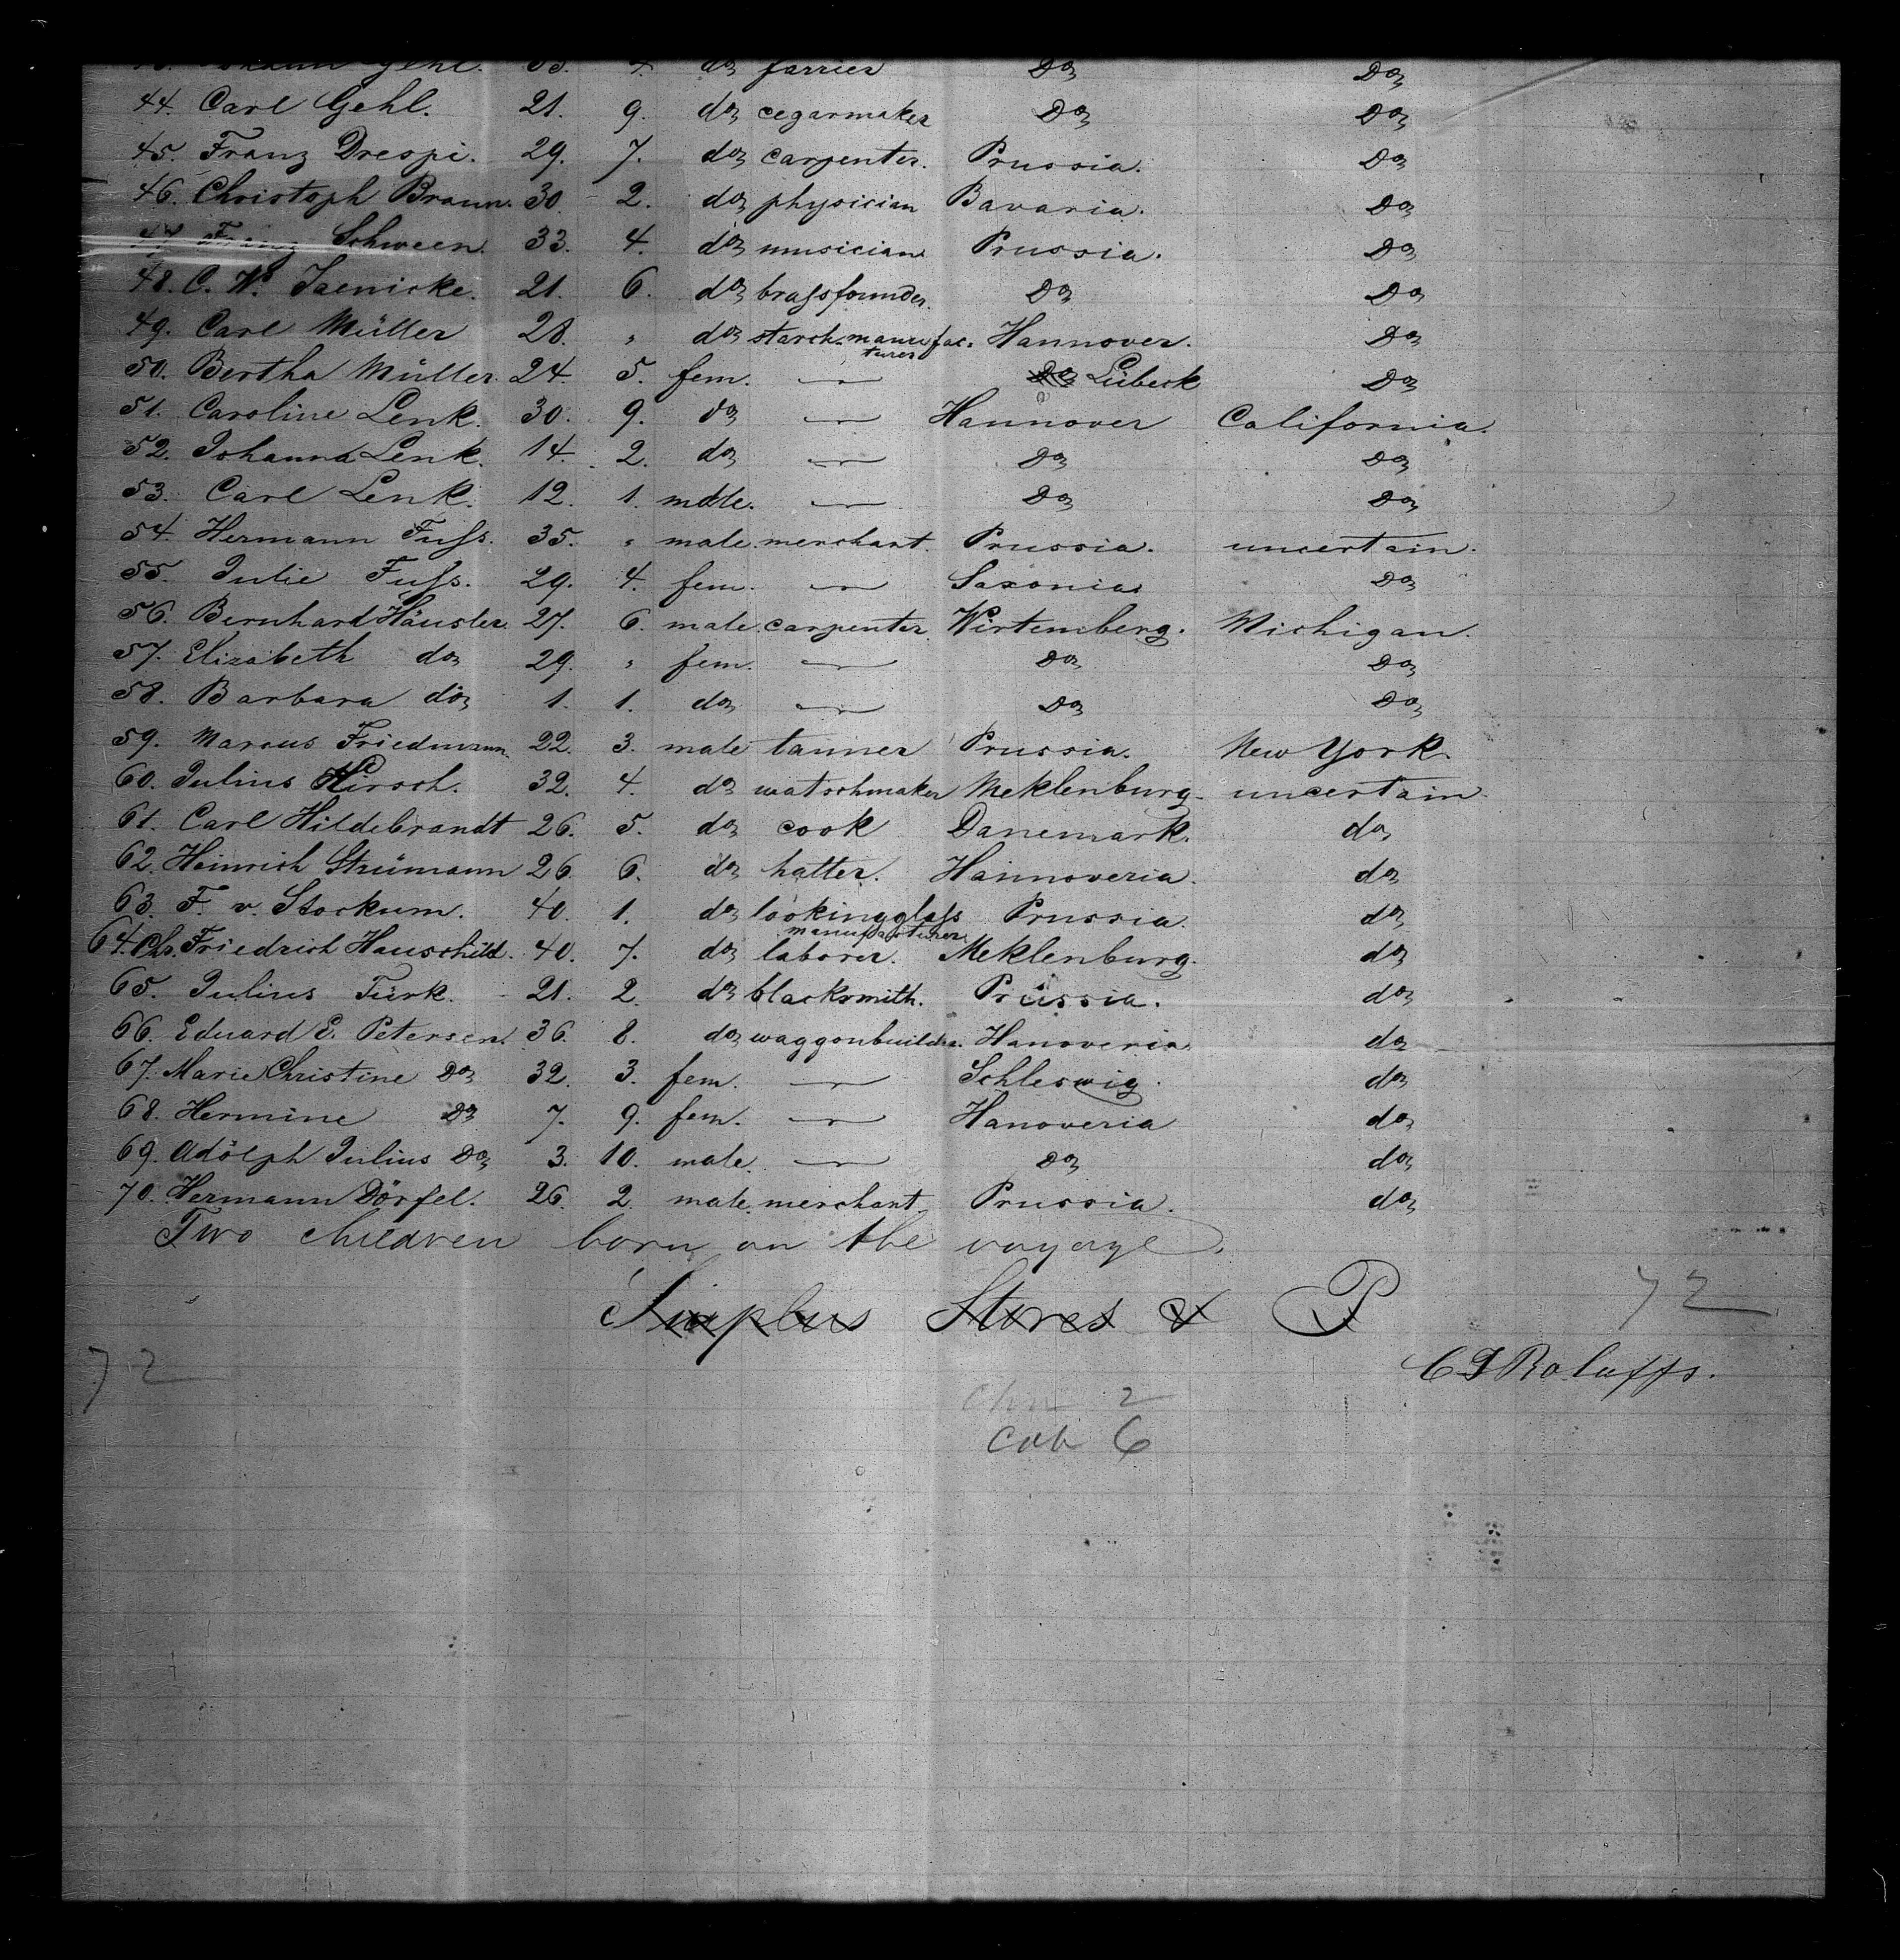 Gehl. 33. 4. do farrier Do Do
44. Carl Gehl. 21. 9. do cegarmaker Do Do
45. Franz Drespi. 29. 7. do carpenter. Prussia. Do
46. Christoph Braun. 30. 2. do physician Bavaria. Do
47. Franz Schween. 33. 4. do musician Prussia. Do
48. C. W. Jaenicke. 21. 6. do brassfounder. Do Do
49. Carl Müller 28. " do starch-manufac- Hannover. Do
turer
50. Bertha Müller. 24. 5. fem. — Do Lübeck Do
51. Caroline Lenk. 30. 9. do — Hannover California.
52. Johanna Lenk. 14. 2. do — Do Do
53. Carl Lenk. 12. 1. male. — Do Do
54. Hermann Fuss. 35. " male. merchant. Prussia. uncertain.
55. Julie Fuss. 29. 4. fem. — Saxonia Do
56. Bernhard Häusler 27. 6. male. carpenter. Wirtemberg. Michigan.
57. Elizabeth do 29. " fem. — Do Do
58. Barbara do 1. 1. do — Do Do
59. Marcus Friedmann 22. 3. male tanner Prussia. New York.
60. Julius Hirsch. 32. 4. do watschmaker Meklenburg. uncertain
61. Carl Hildebrandt 26. 5. do cook Danemark. do
62. Heinrich Strümann 26. 6. do hatter. Hannoveria. do
63. F. v. Stockum. 40. 1. do lookingglass Prussia. do
manufacturer
64. Chs. Friedrich Hauschild. 40. 7. do laborer. Meklenburg. do
65. Julius Türk. 21. 2. do blacksmith. Prussia. do
66. Eduard E. Petersen. 36. 8. do waggonbuilder. Hanoveria. do
67. Marie Christine Do 32. 3. fem. — Schleswig. do
68. Hermine Do 7. 9. fem. — Hanoveria do
69. Adolph Julius Do 3. 10. male. — Do do
70. Hermann Dörfel. 26. 2. male. merchant. Prussia. do
Two children born on the voyage.
Surplus Stores & P
72
72
Roluffs.
2
Cab 6